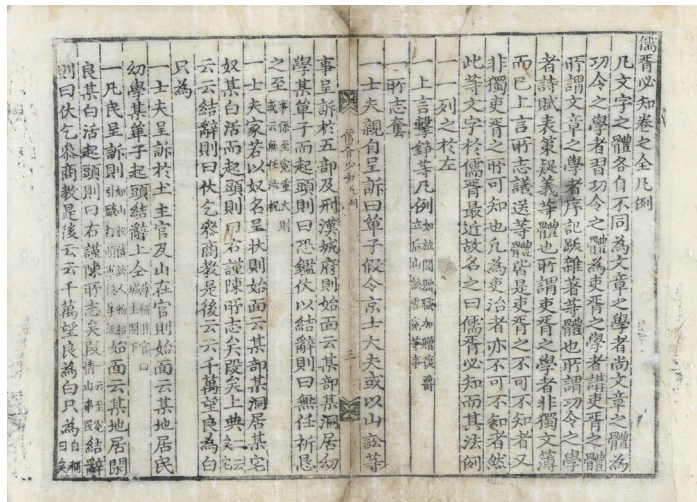 儒胥必知卷之全凡例
凡文字之體各自不同為文章之學者尚文章之體為
功令之學者習功令之體為吏胥之學者講吏胥之體
所謂文章之學者序記跋雜著等體也所謂功令之學
者詩賦表策疑義等體也所謂吏胥之學者非獨文簿
而已上言所志議送等體皆是吏胥之不可不知者又
非獨吏胥之所可知也凡為吏治者亦不可不知者然
此等文字於儒胥最近故名之曰儒胥必知而其法例
一一列之於左
一上言擊錚等凡例 如旌閭贈職加贈復爵
立后山訟雪冤等事
所志套
一士夫親自呈訴曰單子假令京士大夫或以山訟等
儒胥必知凡例 三
事呈訴於五部及刑漢城府則始面云某部某洞居幼
學某單子而起頭則曰恐鑑伏以結辭則曰無任祈恳
之至 事係至冤重大則
或云無任泣祝
一士夫家若以奴名呈狀則始面云某部某洞居某宅
奴某白活而起頭則曰右謹陳所志矣段矣上典 一云
矣宅
云云結辭則曰伏乞參商教是後云云千萬望良為白
只為
一士夫呈訴於土主官及山在官則始面云某地居民
幼學某單子起頭結辭上仝
一凡民呈訴則 始面云某地居閑
良某白活起頭則曰右謹陳所志矣段 結辭
則曰伏乞參商教是後云云千萬望良為白只為